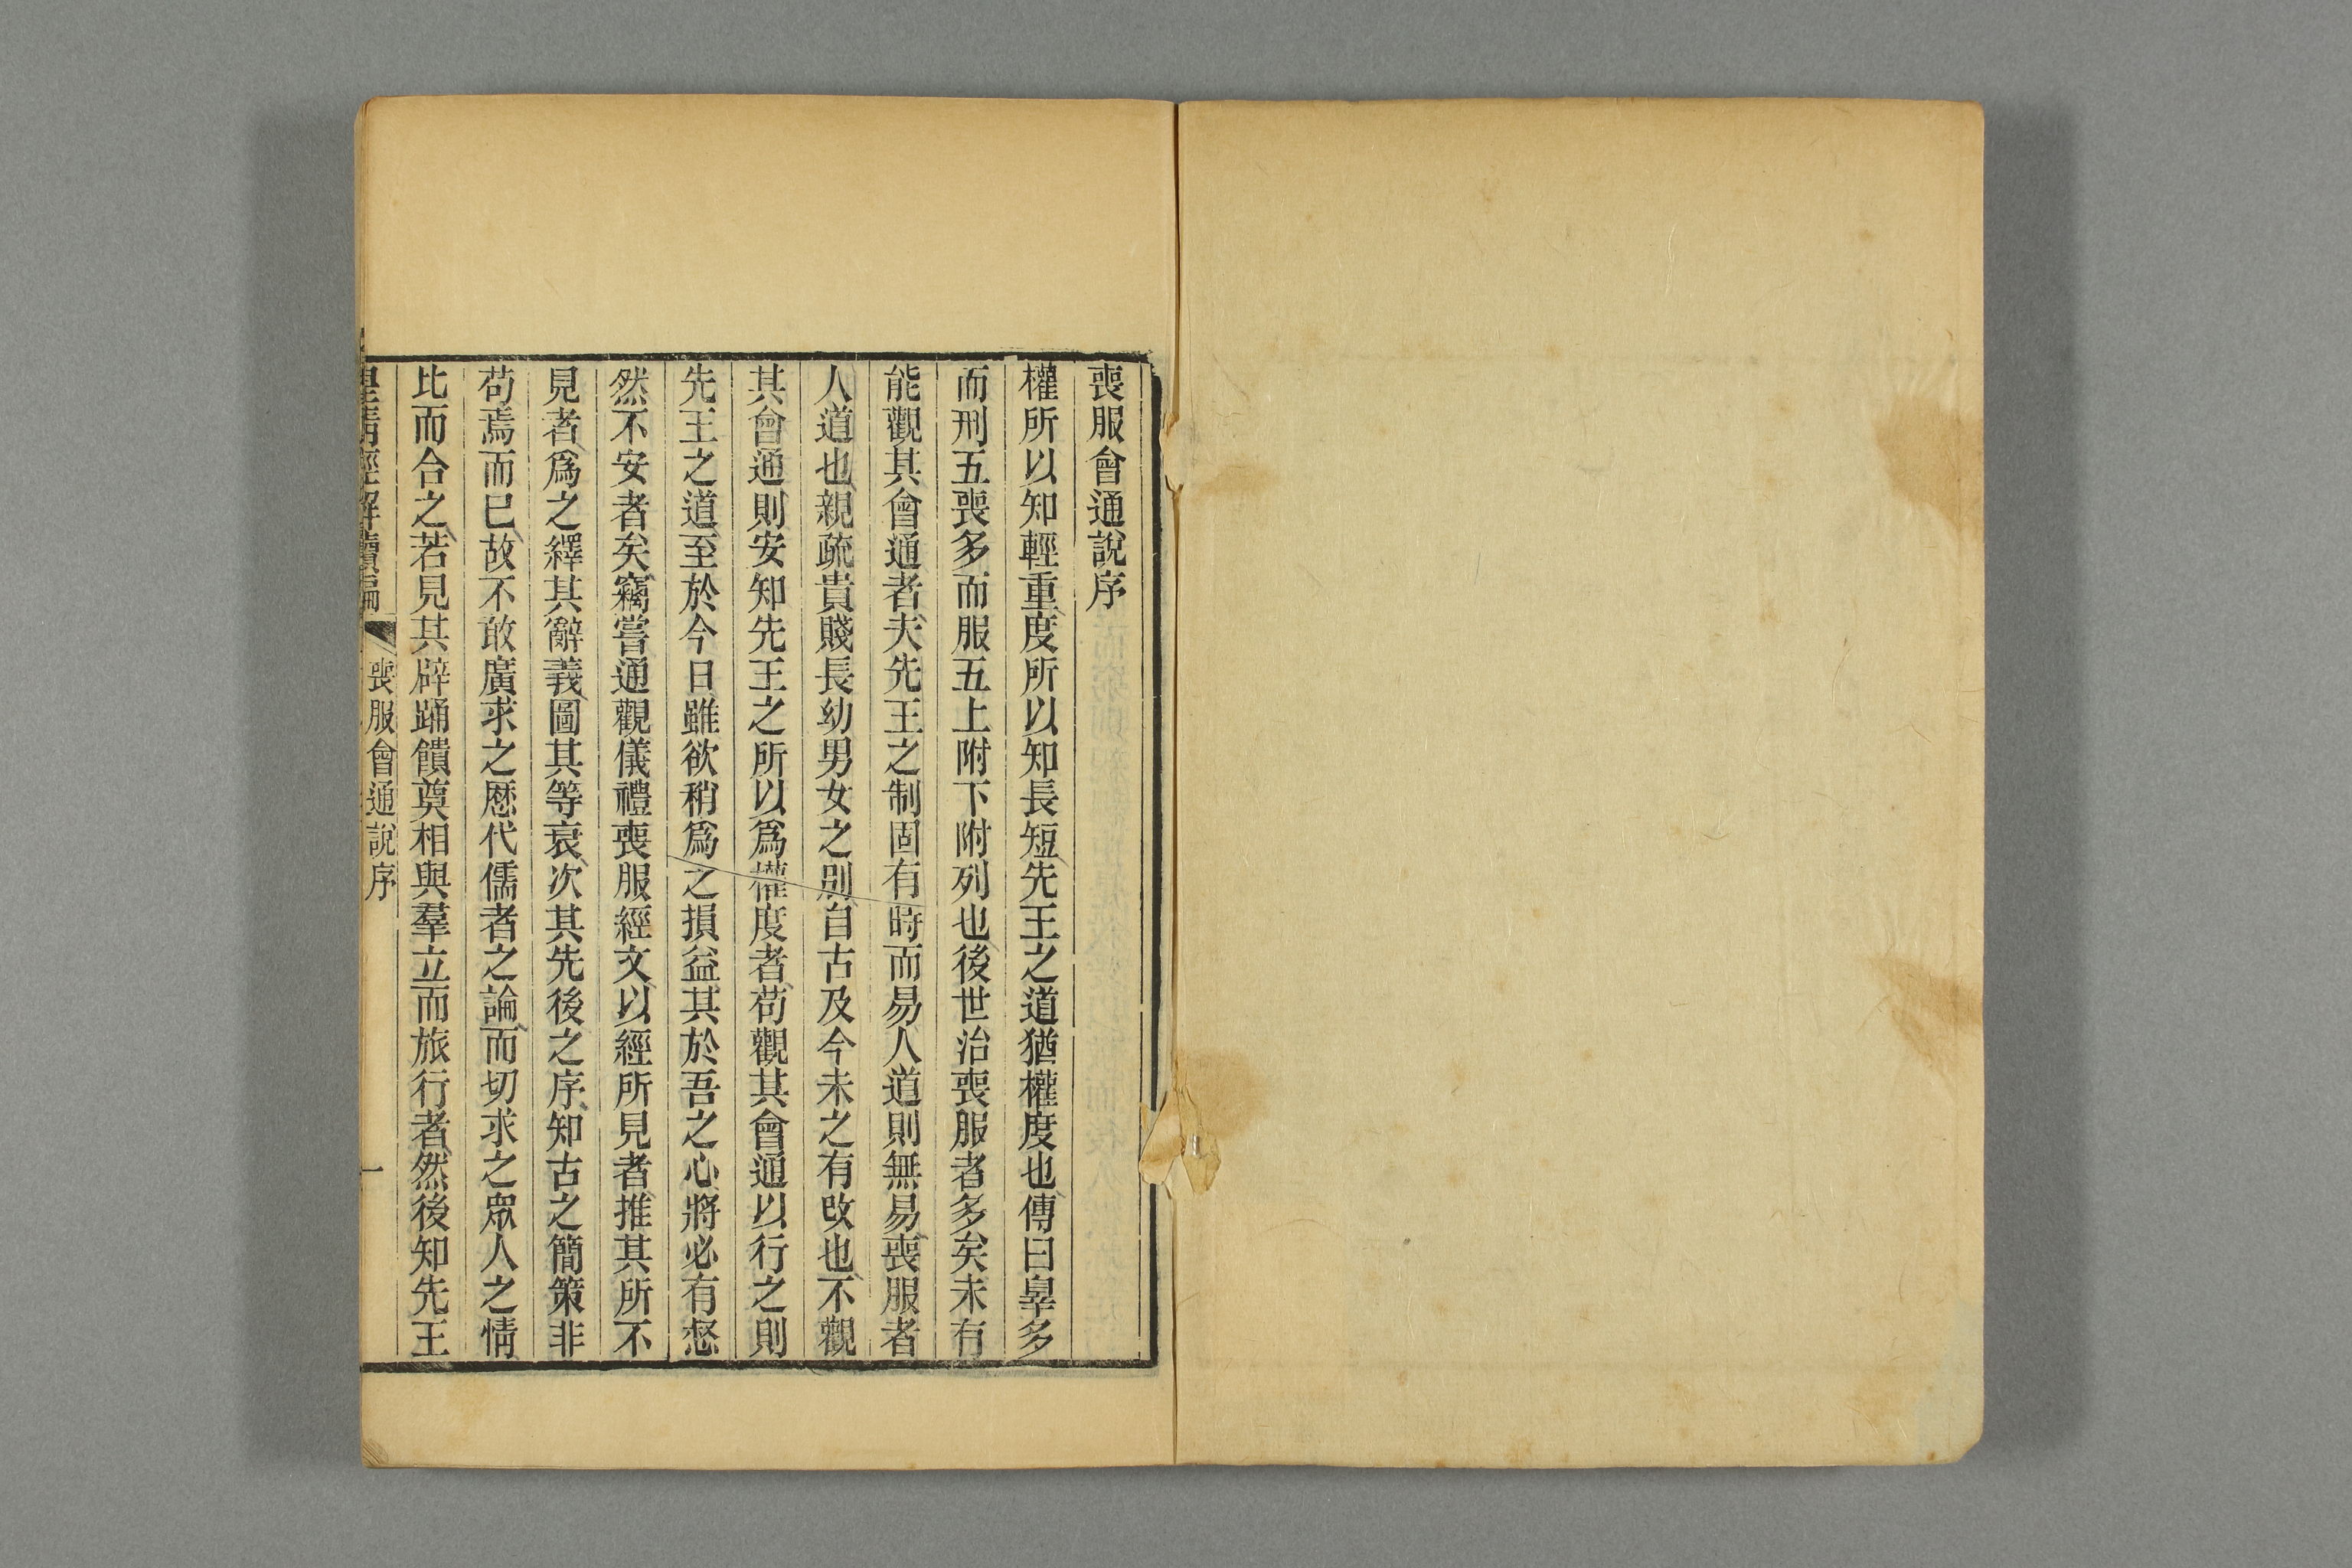 喪服會通說序
權所以知輕重、度所以知長短、先王之道猶權度也、傳曰辠多
而刑五喪多而服五上附下附列也、後世治喪服者多矣未有
能觀其會通者、夫先王之制固有時而易人道則無易、喪服者
人道也、親疏貴賤長幼男女之別、自古及今未之有改也、不觀
其會通則安知先王之所以爲權度者、苟觀其會通以行之則
先王之道至於今日雖欲稍爲之損益、其於吾之心將必有愻
然不安者矣、竊嘗通觀儀禮喪服經文、以經所見者、推其所不
見者、爲之繹其辭義、圖其等衰、次其先後之序、知古之簡策非
苟焉而已、故不敢廣求之歷代儒者之論、而切求之眾人之情
比而合之、若見其辟踊饋奠相與羣立而旅行者、然後知先王
皇淸經解續編 喪服會通說序 一